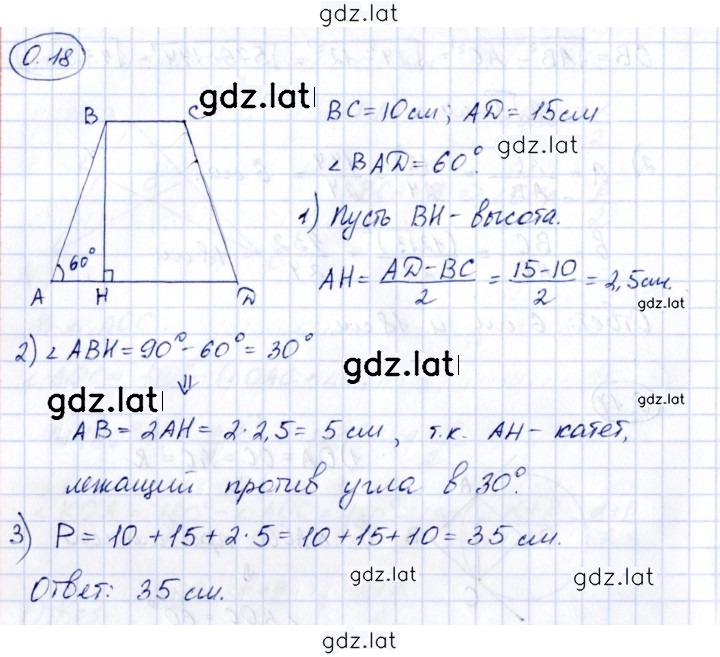 gdz.lat
0.18
gdz.lat
B
C
A
H
D
60°
BC=10см; AD=15см
gdz.lat
∠BAD=60°.
1) Пусть BH-высота.
AH= AD-BC / 2 = 15-10 / 2 = 2,5см.
gdz.lat
2) ∠ABH=90°-60°=30°
gdz.lat
⇓
gdz.lat
gdz.lat
AB=2AH=2·2,5=5см, т.к. AH-катет,
лежащий против угла в 30°.
3) P=10+15+2·5=10+15+10=35 см.
gdz.lat
gdz.lat
Ответ: 35 см.
gdz.lat